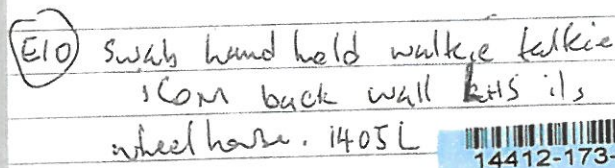 E10 Swab hand held walkie talkie
ICOM back wall RHS i/s
wheelhouse. 1405L
14412-173-